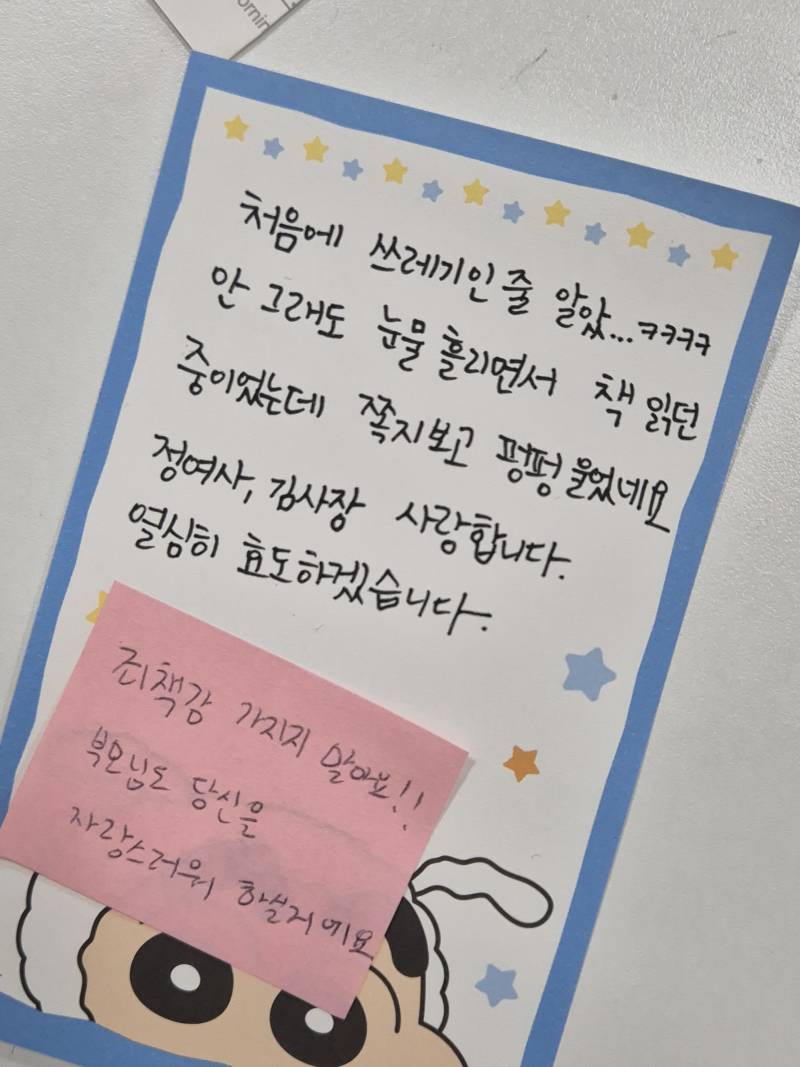 처음에 쓰레기인줄 알았...ㅋㅋㅋㅋ
안 그래도 눈물 흘리면서 책 읽던
중이었는데 쪽지보고 펑펑 울었네요
정여사, 김사장 사랑합니다.
열심히 효도하겠습니다.
죄책감 가지지 말아요!!
부모님도 당신을
자랑스러워 하실거에요